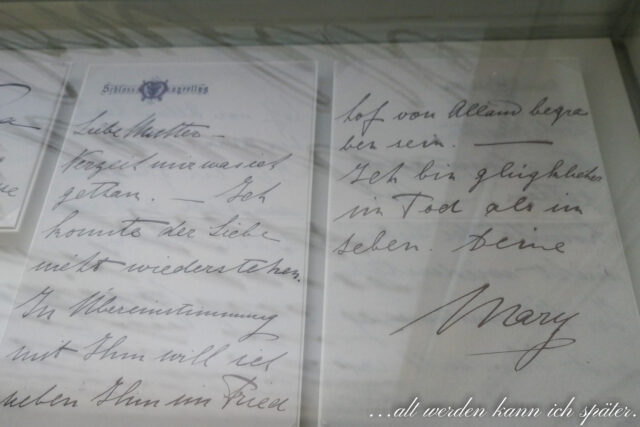 Schloss Mayerling
Liebe Mutter –
Verzeit mir was ich
gethan. – Ich
konnte der Liebe
nicht wiederstehen.
In Übereinstimmung
mit Ihm will ich
neben Ihm im Fried
hof von Alland begra
ben sein. –
Ich bin glücklicher
im Tod als im
Leben. Deine
Mary
...alt werden kann ich später.